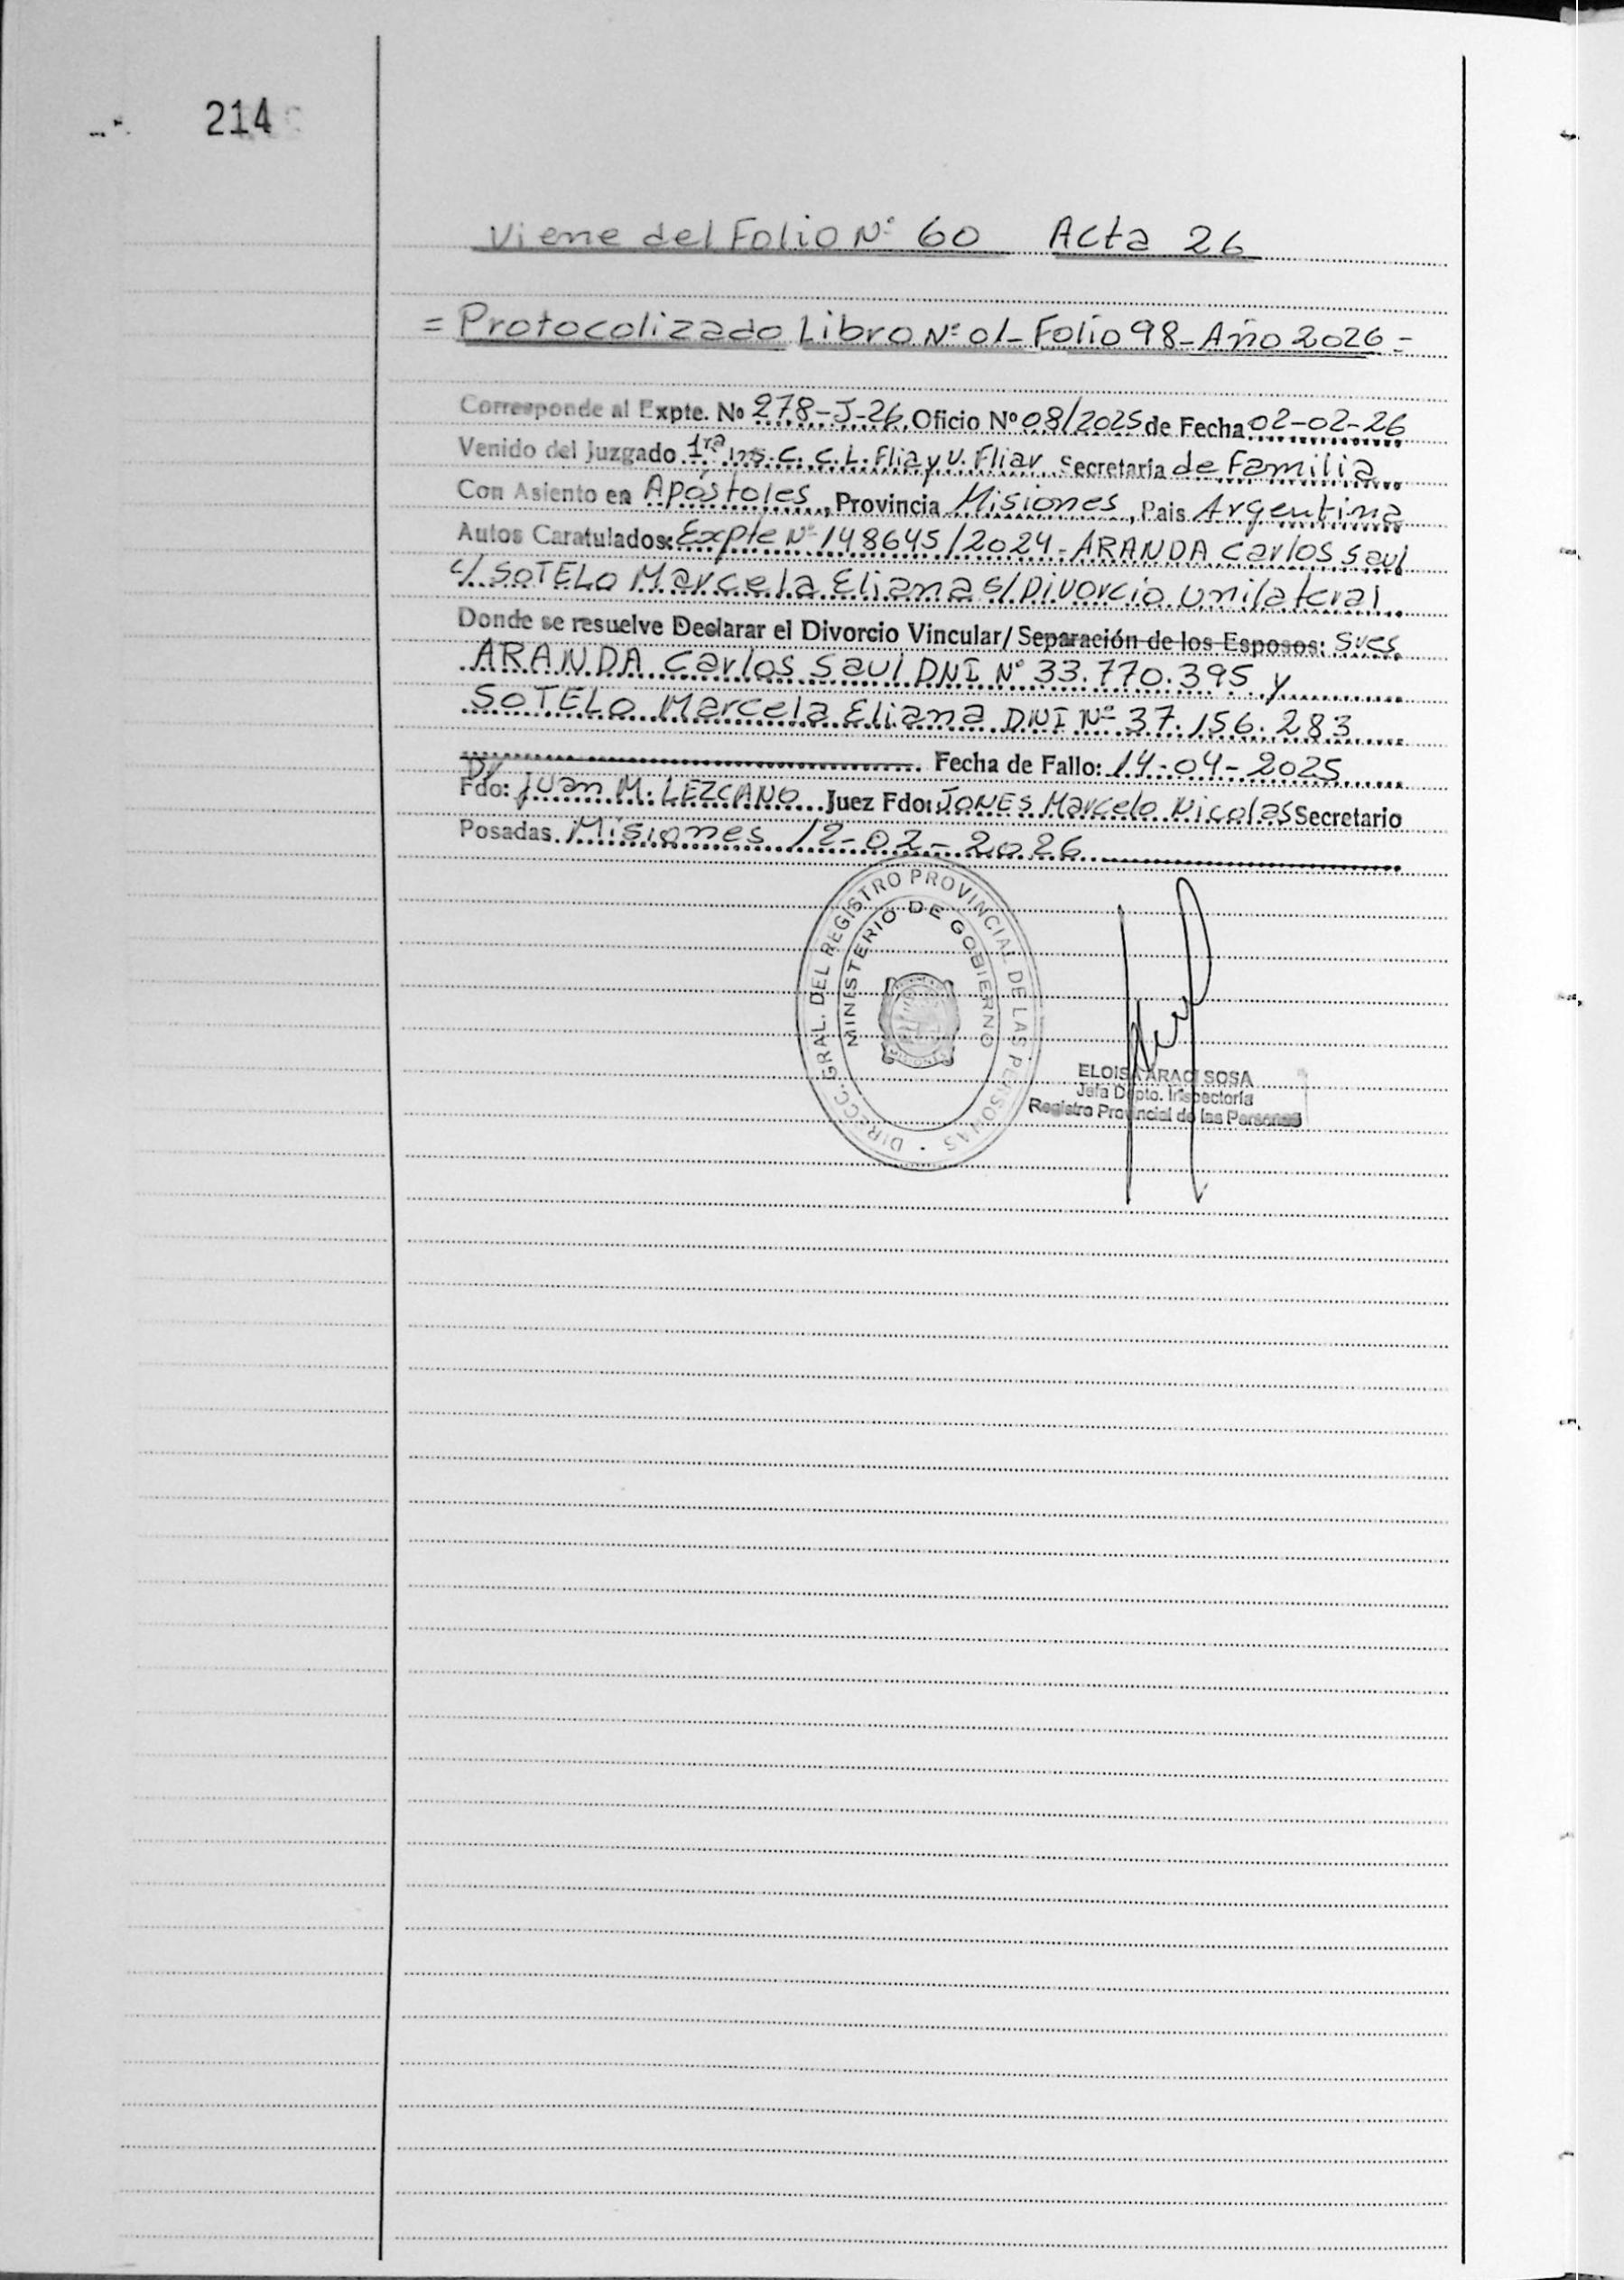 214
Viene del Folio Nº 60 Acta 26
= Protocolizado Libro Nº 01 - Folio 98 - Año 2026 =
Corresponde al Expte. Nº 278-J-26, Oficio Nº 08/2025 de Fecha 02-02-26
Venido del Juzgado 1ra Ins. C. C. L. Flia y V. Fliar Secretaría de Familia
Con Asiento en Apóstoles, Provincia Misiones, Pais Argentina
Autos Caratulados: Expte Nº 148645/2024 - ARANDA Carlos Saul
c/ SOTELO Marcela Eliana s/ Divorcio Unilateral
Donde se resuelve Declarar el Divorcio Vincular/ Separación de los Esposos: Sres
ARANDA Carlos Saul DNI Nº 33.770.395 y
SOTELO Marcela Eliana DNI Nº 37.156.283
Fecha de Fallo: 14-04-2025
Fdo: Dr Juan M. LEZCANO Juez Fdo: JONES Marcelo Nicolas Secretario
Posadas. Misiones 12-02-2026
DIRECC. GRAL. DEL REGISTRO PROVINCIAL DE LAS PERSONAS
MINISTERIO DE GOBIERNO
MISIONES
ELOISA ARACI SOSA
Jefa Dpto. Inspectoria
Registro Provincial de las Personas